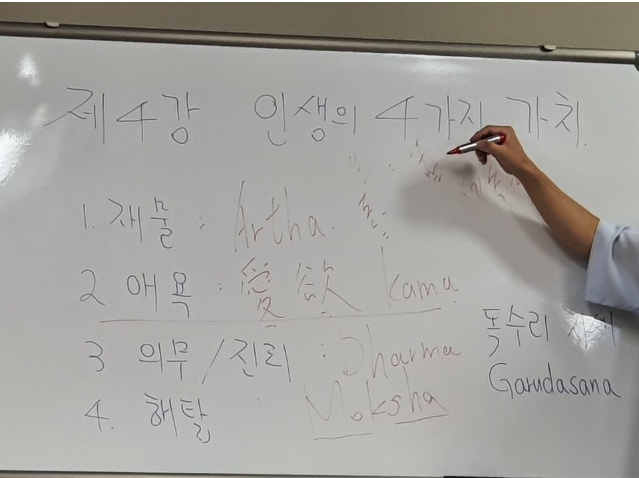 제4강 인생의 4가지 가치.
1. 재물 : Artha.
2 애욕 : 愛欲 Kama
3 의무/진리 : Dharma
4. 해탈 : Moksha
독수리
Garudasana